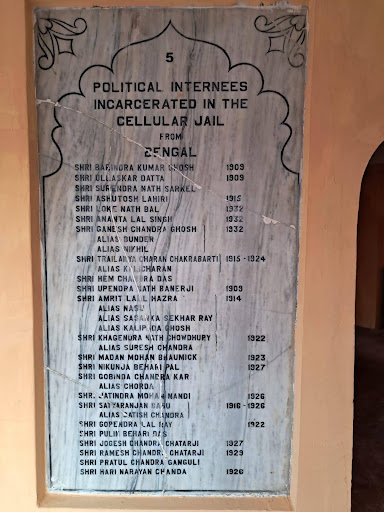 5
POLITICAL INTERNEES
INCARCERATED IN THE
CELLULAR JAIL
FROM
BENGAL
SHRI BARINDRA KUMAR GHOSH 1909
SHRI ULLASKAR DATTA 1909
SHRI SURENDRA NATH SARKEL
SHRI ASHUTOSH LAHIRI 1915
SHRI LOKE NATH BAL 1932
SHRI ANANTA LAL SINGH 1932
SHRI GANESH CHANDRA GHOSH 1932
ALIAS DUNDEN
ALIAS NIKHIL
SHRI TRAILAKYA CHARAN CHAKRABARTI 1915 - 1924
ALIAS KALICHARAN
SHRI HEM CHANDRA DAS
SHRI UPENDRA NATH BANERJI 1909
SHRI AMRIT LAL HAZRA 1914
ALIAS NASU
ALIAS SASANKA SEKHAR RAY
ALIAS KALIPADA GHOSH
SHRI KHAGENDRA NATH CHOWDHURY 1922
ALIAS SURESH CHANDRA
SHRI MADAN MOHAN BHAUMICK 1923
SHRI NIKUNJA BEHARI PAL 1927
SHRI GOBINDA CHANDRA KAR
ALIAS CHORDA
SHRI JATINDRA MOHAN NANDI 1926
SHRI SATYARANJAN BASU 1916 - 1926
ALIAS SATISH CHANDRA
SHRI GOPENDRA LAL RAY 1922
SHRI PULIN BEHARI DAS
SHRI JOGESH CHANDRA CHATARJI 1927
SHRI RAMESH CHANDRA CHATARJI 1929
SHRI PRATUL CHANDRA GANGULI
SHRI HARI NARAYAN CHANDA 1926